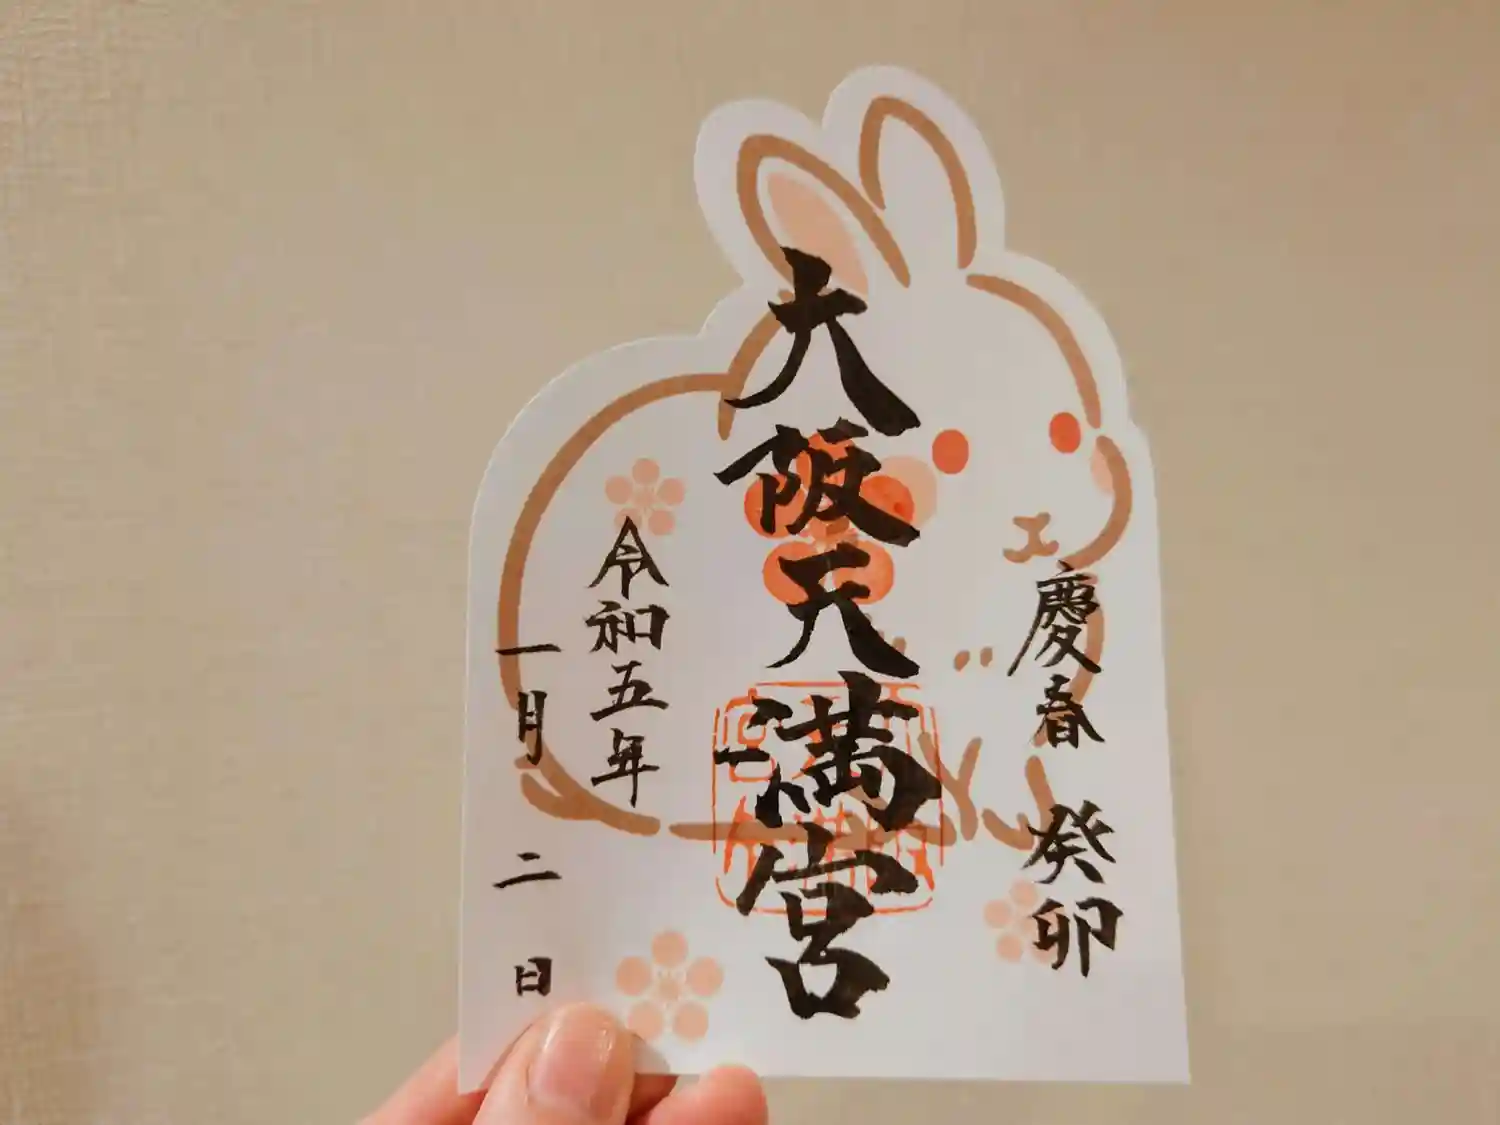 慶春 癸卯
大阪天満宮
令和五年
一月二日